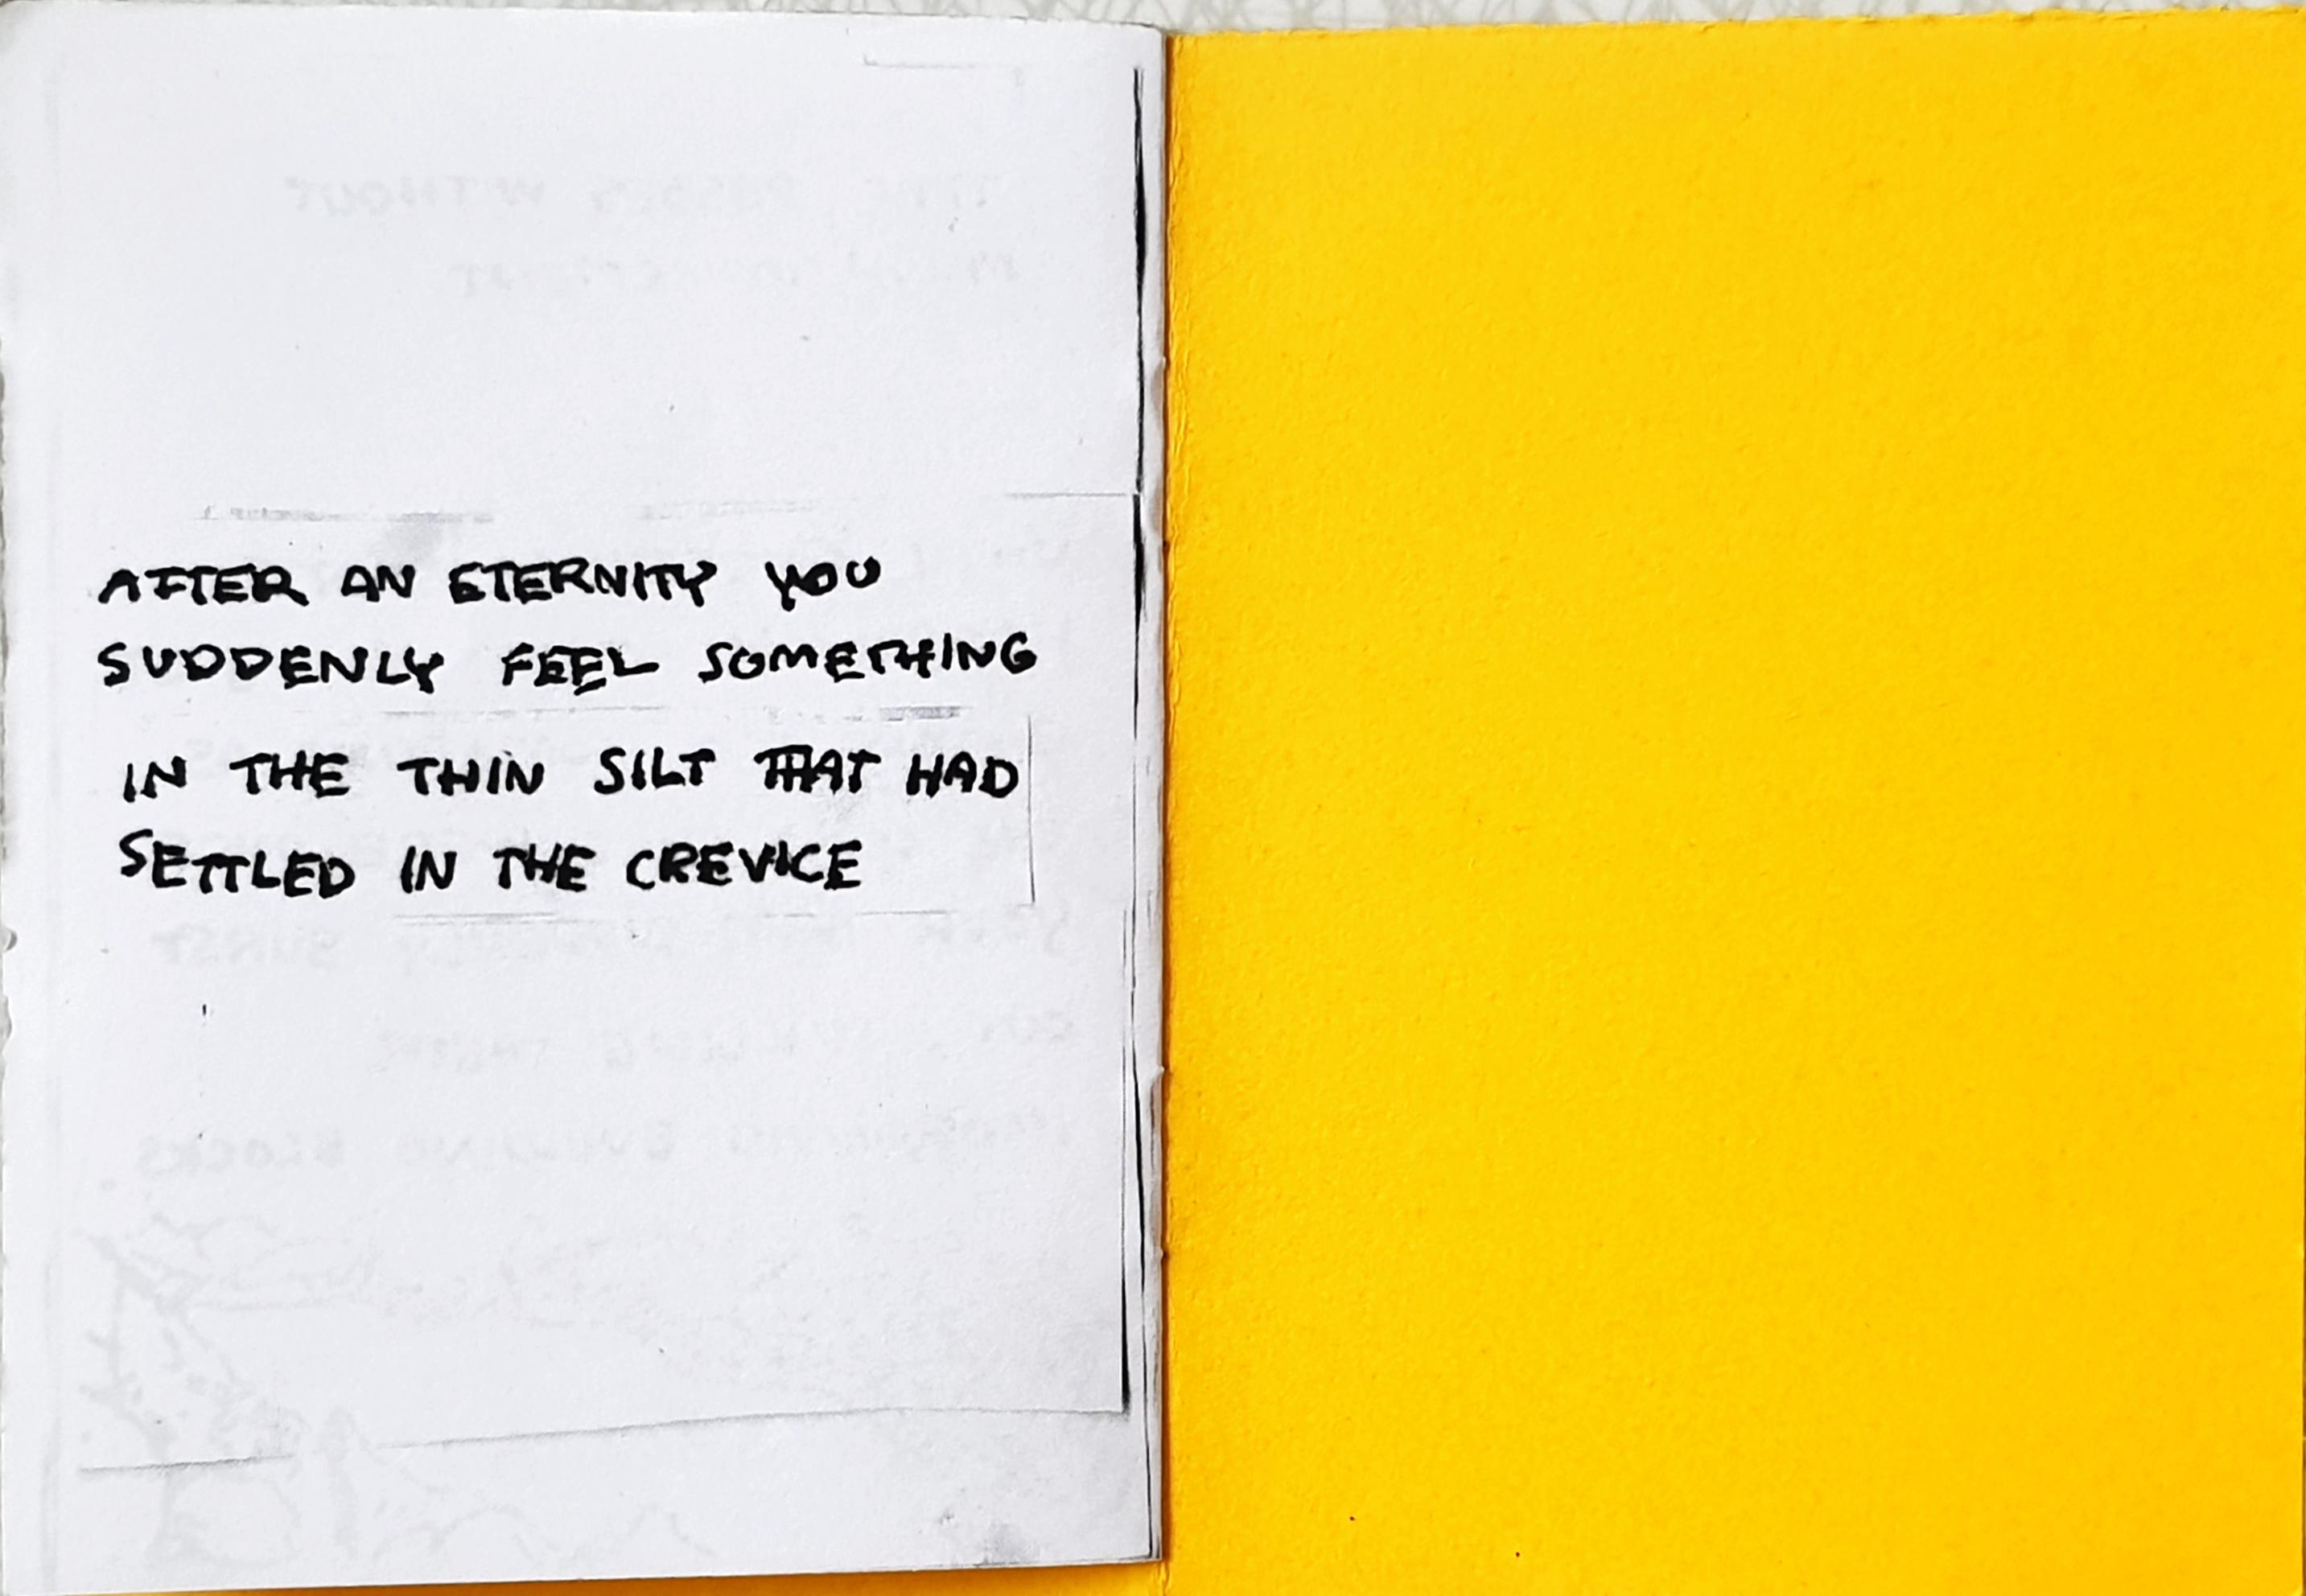 AFTER AN ETERNITY YOU
SUDDENLY FEEL SOMETHING
IN THE THIN SILT THAT HAD
SETTLED IN THE CREVICE